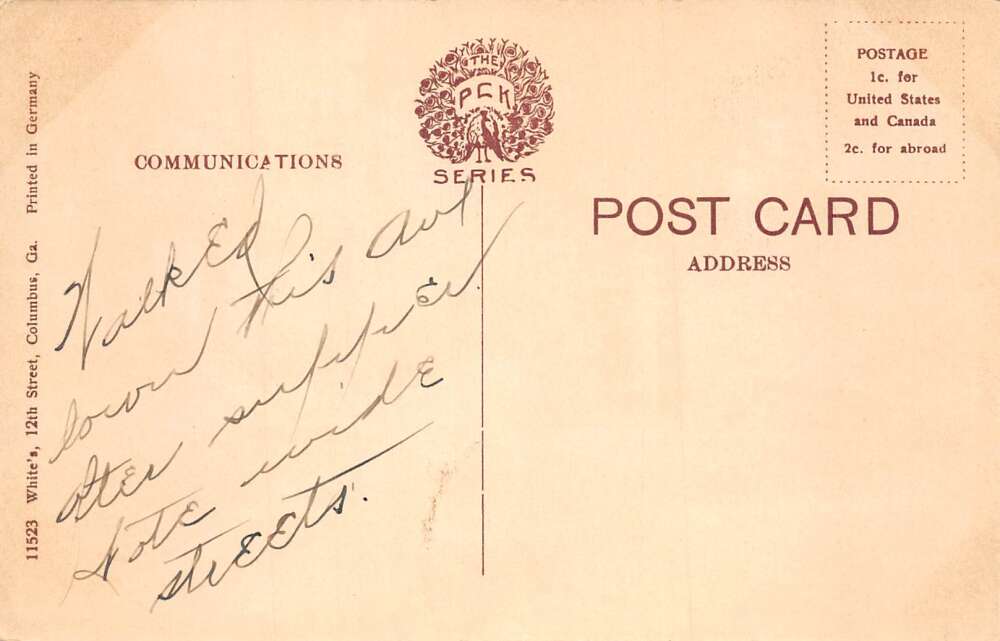 THE
PCK
SERIES
POSTAGE
1c. for
United States
and Canada
2c. for abroad
COMMUNICATIONS
POST CARD
ADDRESS
Walked
down this ave
after supper.
Note wide
streets.
11523 White's, 12th Street, Columbus, Ga. Printed in Germany